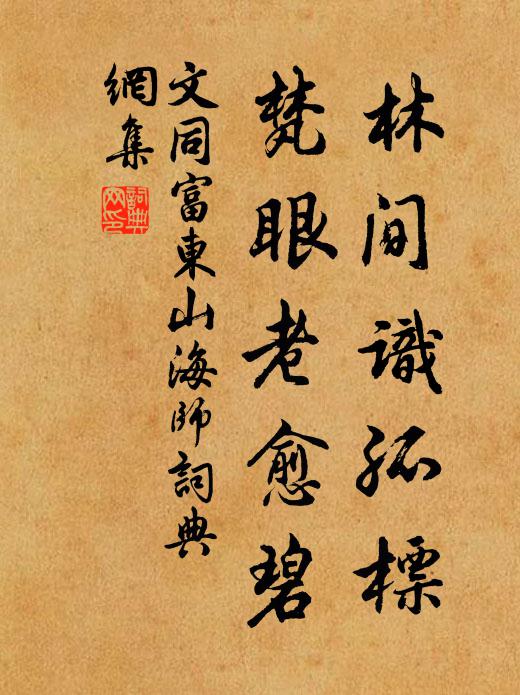 林間識孤標
梵眼老愈碧
文同富東山海師詞典
網集
詞典網印